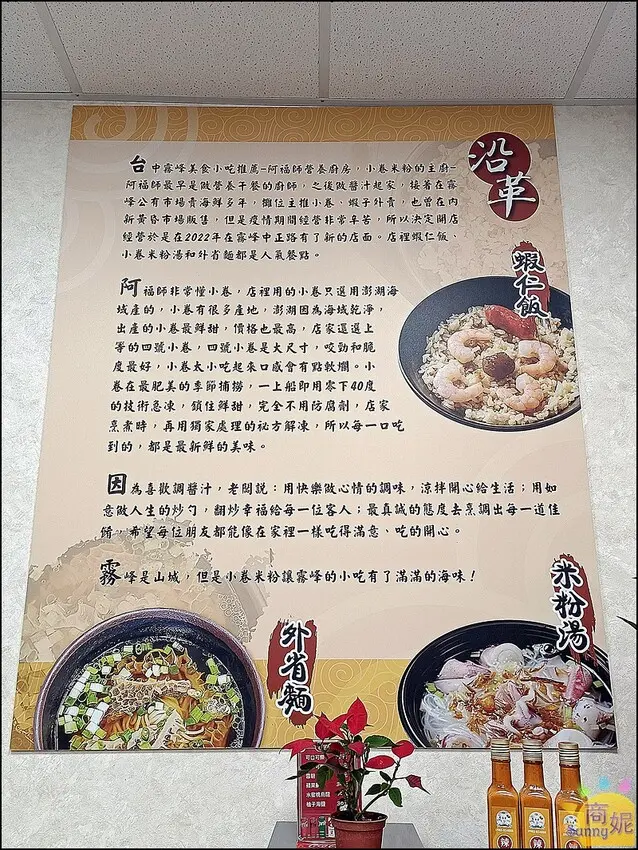 沿革
台中霧峰美食小吃推薦-阿福師營養廚房，小卷米粉的主廚-
阿福師最早是做營養午餐的廚師，之後做醬汁起家，接著在霧
峰公有市場賣海鮮多年，攤位主推小卷、蝦子外賣，也曾在內
新黃昏市場販售，但是疫情期間經營非常辛苦，所以決定開店
經營於是在2022年在霧峰中正路有了新的店面。店裡蝦仁飯、
小卷米粉湯和外省麵都是人氣餐點。
阿福師非常懂小卷，店裡用的小卷只選用澎湖海
域產的，小卷有很多產地，澎湖因為海域乾淨，
出產的小卷最鮮甜，價格也最高，店家還選上
等的四號小卷，四號小卷是大尺寸，咬勁和脆
度最好，小卷太小吃起來口感會有點軟爛。小
卷在最肥美的季節捕撈，一上船即用零下40度
的技術急凍，鎖住鮮甜，完全不用防腐劑，店家
烹煮時，再用獨家處理的祕方解凍，所以每一口吃
到的，都是最新鮮的美味。
因為喜歡調醬汁，老闆說：用快樂做心情的調味，涼拌開心給生活；用如
意做人生的炒勺，翻炒幸福給每一位客人；最真誠的態度去烹調出每一道佳
餚，希望每位朋友都能像在家裡一樣吃得滿意、吃的開心。
霧峰是山城，但是小卷米粉讓霧峰的小吃有了滿滿的海味！
蝦仁飯
米粉湯
外省麵
辣
辣
辣
商妮
Sunny